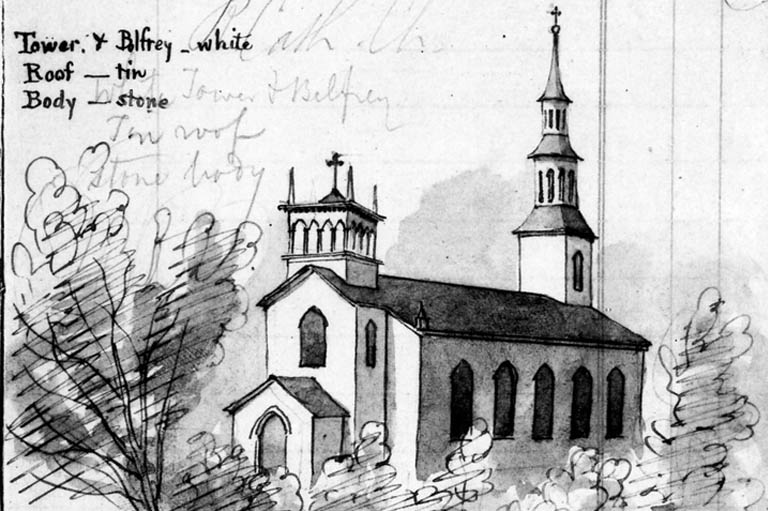 R. Cath. Ch.
Tower. & Belfrey - white
Roof - tin
Body - stone
White Tower & Belfrey
Tin roof
Stone body